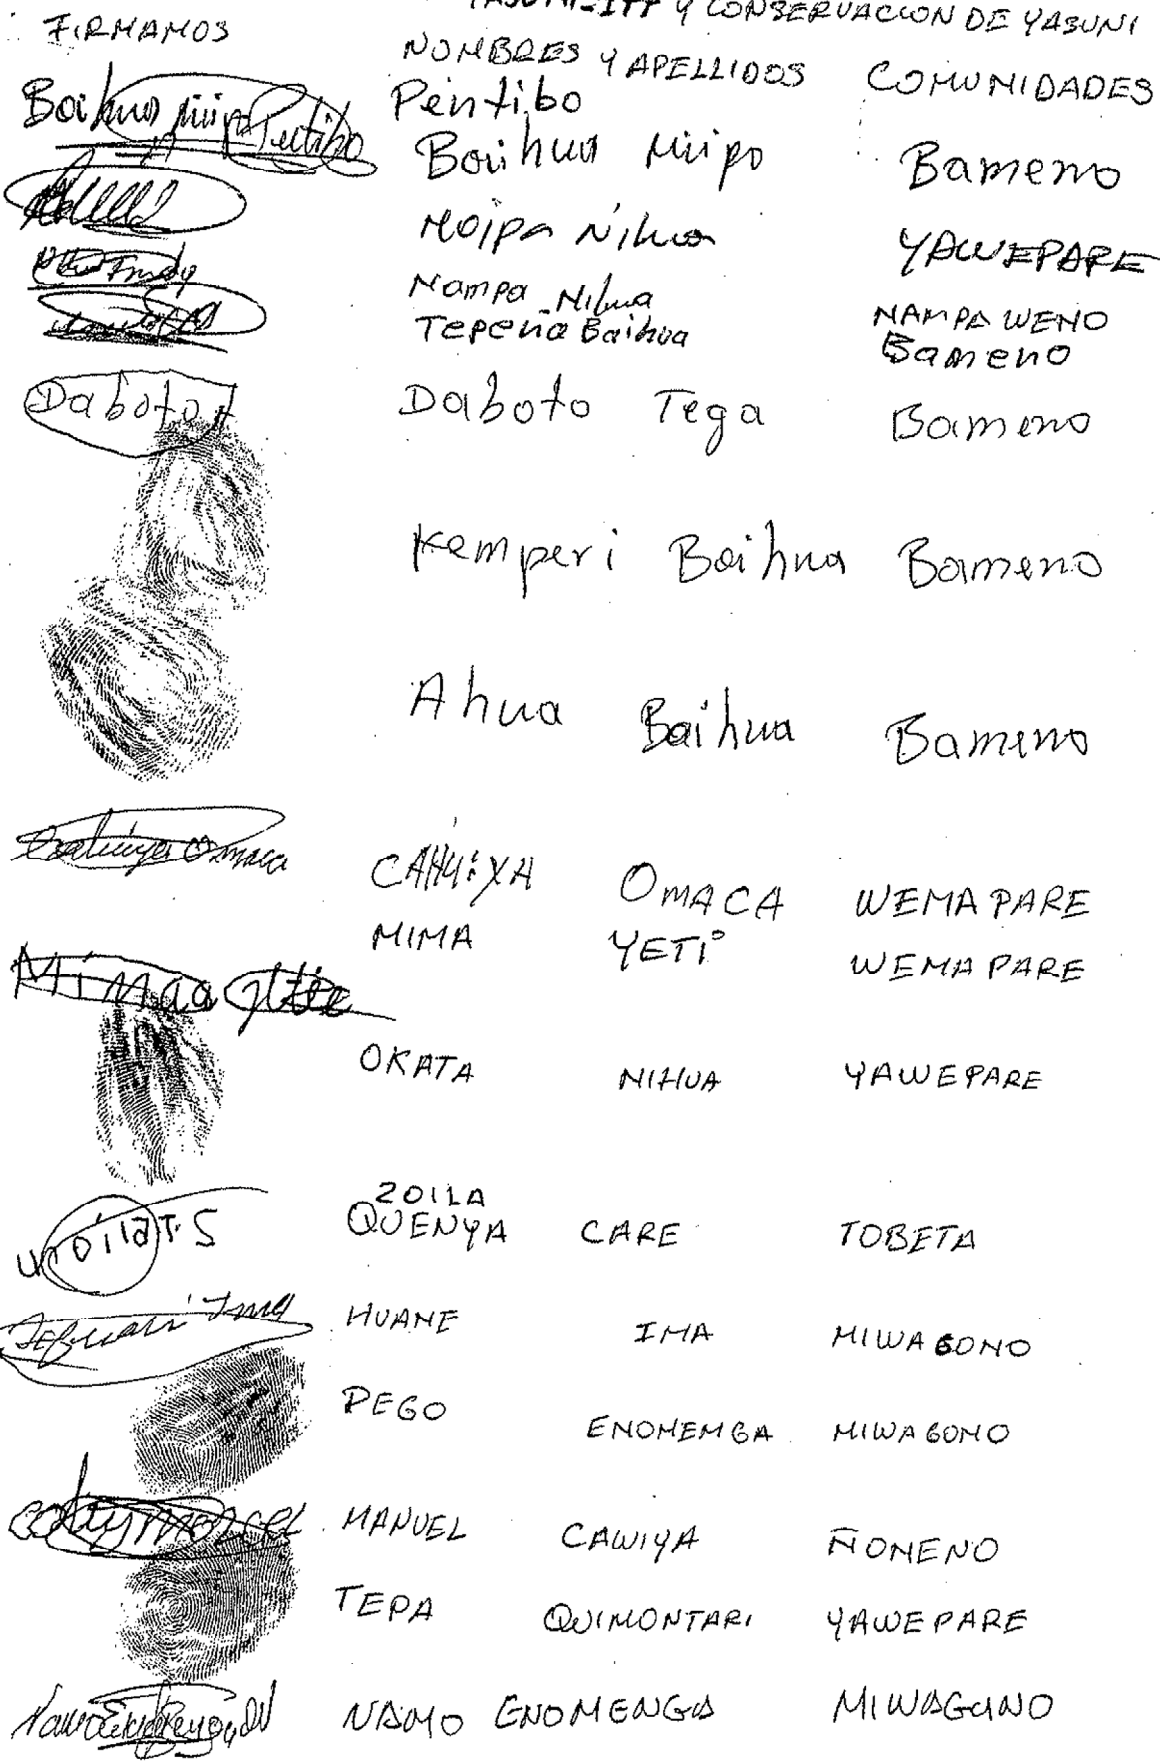 YASUNI-ITT Y CONSERVACION DE YASUNI
FIRMAMOS NOMBRES Y APELLIDOS COMUNIDADES
Baihua Miipo Pentibo Pentibo
Baihua Miipo Bameno
Moipa Nihua YAWEPARE
Nampa Nihua NAMPA WENO
Tepeña Baihua Bameno
Daboto T Daboto Tega Bameno
Kemperi Baihua Bameno
Ahua Baihua Bameno
Omaca OMACA WEMAPARE
MIMA YETI WEMAPARE
OKATA NIHUA YAWEPARE
ZOILA
QUENYA CARE TOBETA
Ima HUANE IMA MIWAGONO
PEGO ENOMEMGA MIWAGONO
MANUEL CAWIYA ÑONENO
TEPA QUIMONTARI YAWEPARE
NAMO ENOMENGA MIWAGUNO